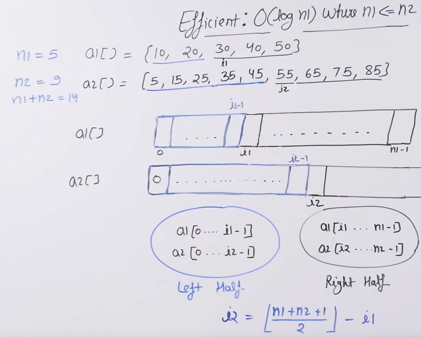 Efficient: O(log n1) where n1 <= n2
n1 = 5 a1[] = {10, 20, 30, 40, 50}
i1
n2 = 9 a2[] = {5, 15, 25, 35, 45, 55, 65, 75, 85}
i2
n1+n2 = 14
i1-1
a1[] .... - - - - - - -
0 i1 n1-1
i2-1
a2[] 0 ..............
i2
a1[0 .... i1-1] a1[i1 ... n1-1]
a2[0 ... i2-1] a2[i2 ... n2-1]
Left Half Right Half
i2 = ⌊(n1+n2+1)/2⌋ - i1